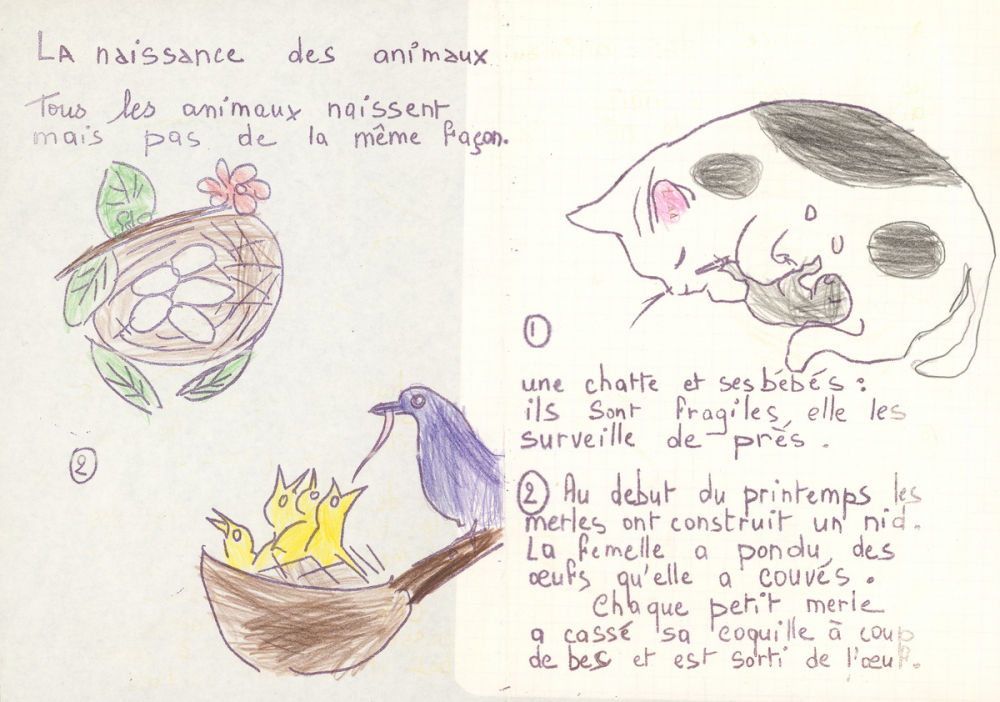 La naissance des animaux
Tous les animaux naissent
mais pas de la même façon.
1
une chatte et ses bébés :
ils sont fragiles, elle les
surveille de près.
2
2 Au debut du printemps les
merles ont construit un nid.
La femelle a pondu des
œufs qu'elle a couvés.
Chaque petit merle
a cassé sa coquille à coup
de bec et est sorti de l'œuf.